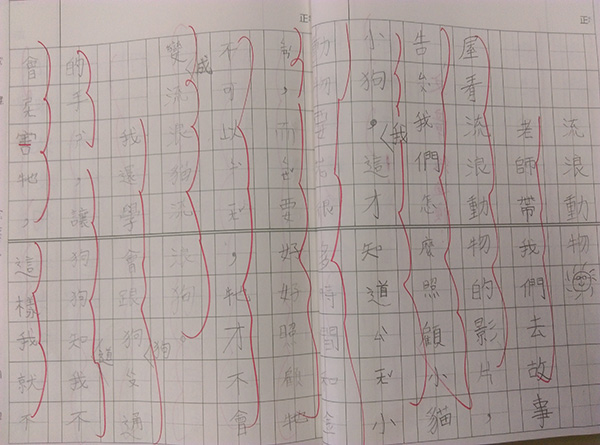 流浪動物
老師帶我們去故事
屋看流浪動物的影片，
告訴我們怎麼照顧小貓
小狗。我這才知道小
動物要花很多時間和金
，而且要好好照顧牠
不可以，牠才不會
變成流浪貓流浪狗
我還學會跟狗狗通
的手，讓狗狗知道我不
會害牠，這樣我就不